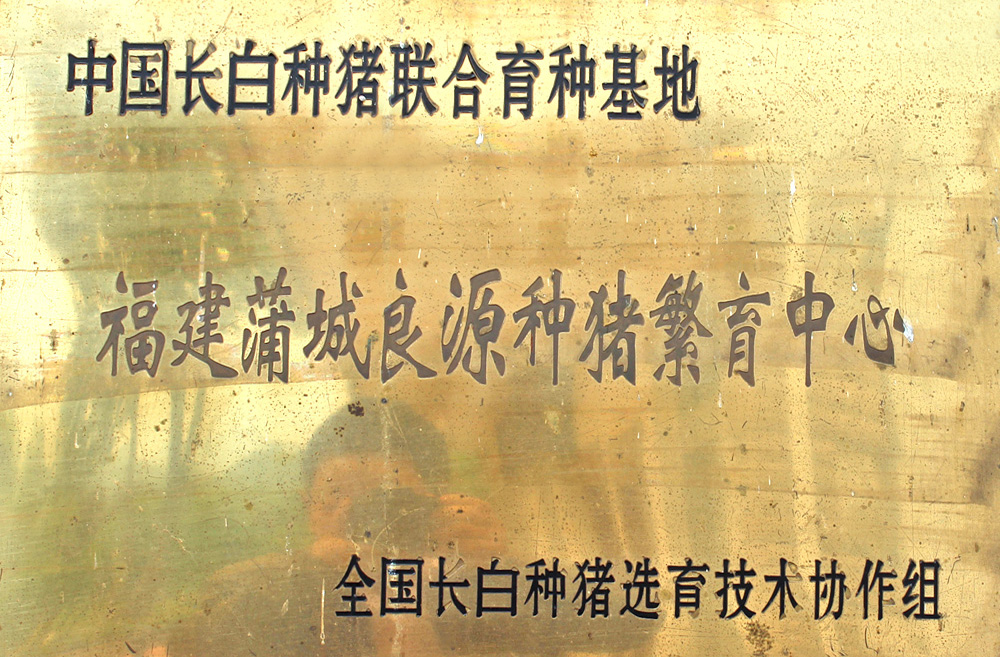 中国长白种猪联合育种基地
福建蒲城良源种猪繁育中心
全国长白种猪选育技术协作组